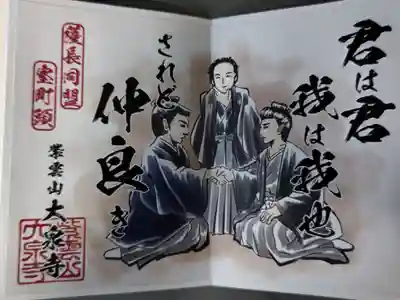 君は君
我は我也
されど
仲良き
薩長同盟
室町頭
紫雲山 大泉寺